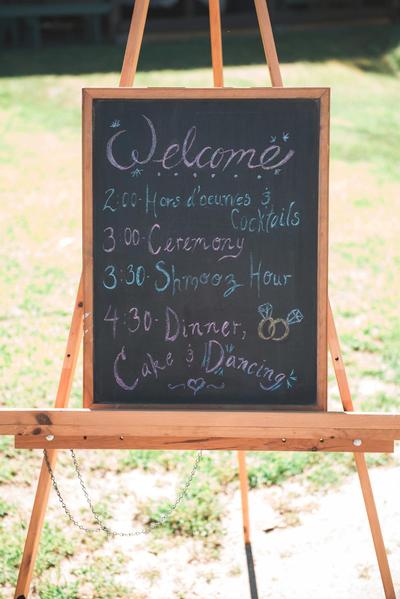 Welcome
2:00-Hors d'oeurves &
Cocktails
3:00-Ceremony
3:30-Shmooz Hour
4:30-Dinner,
Cake & Dancing